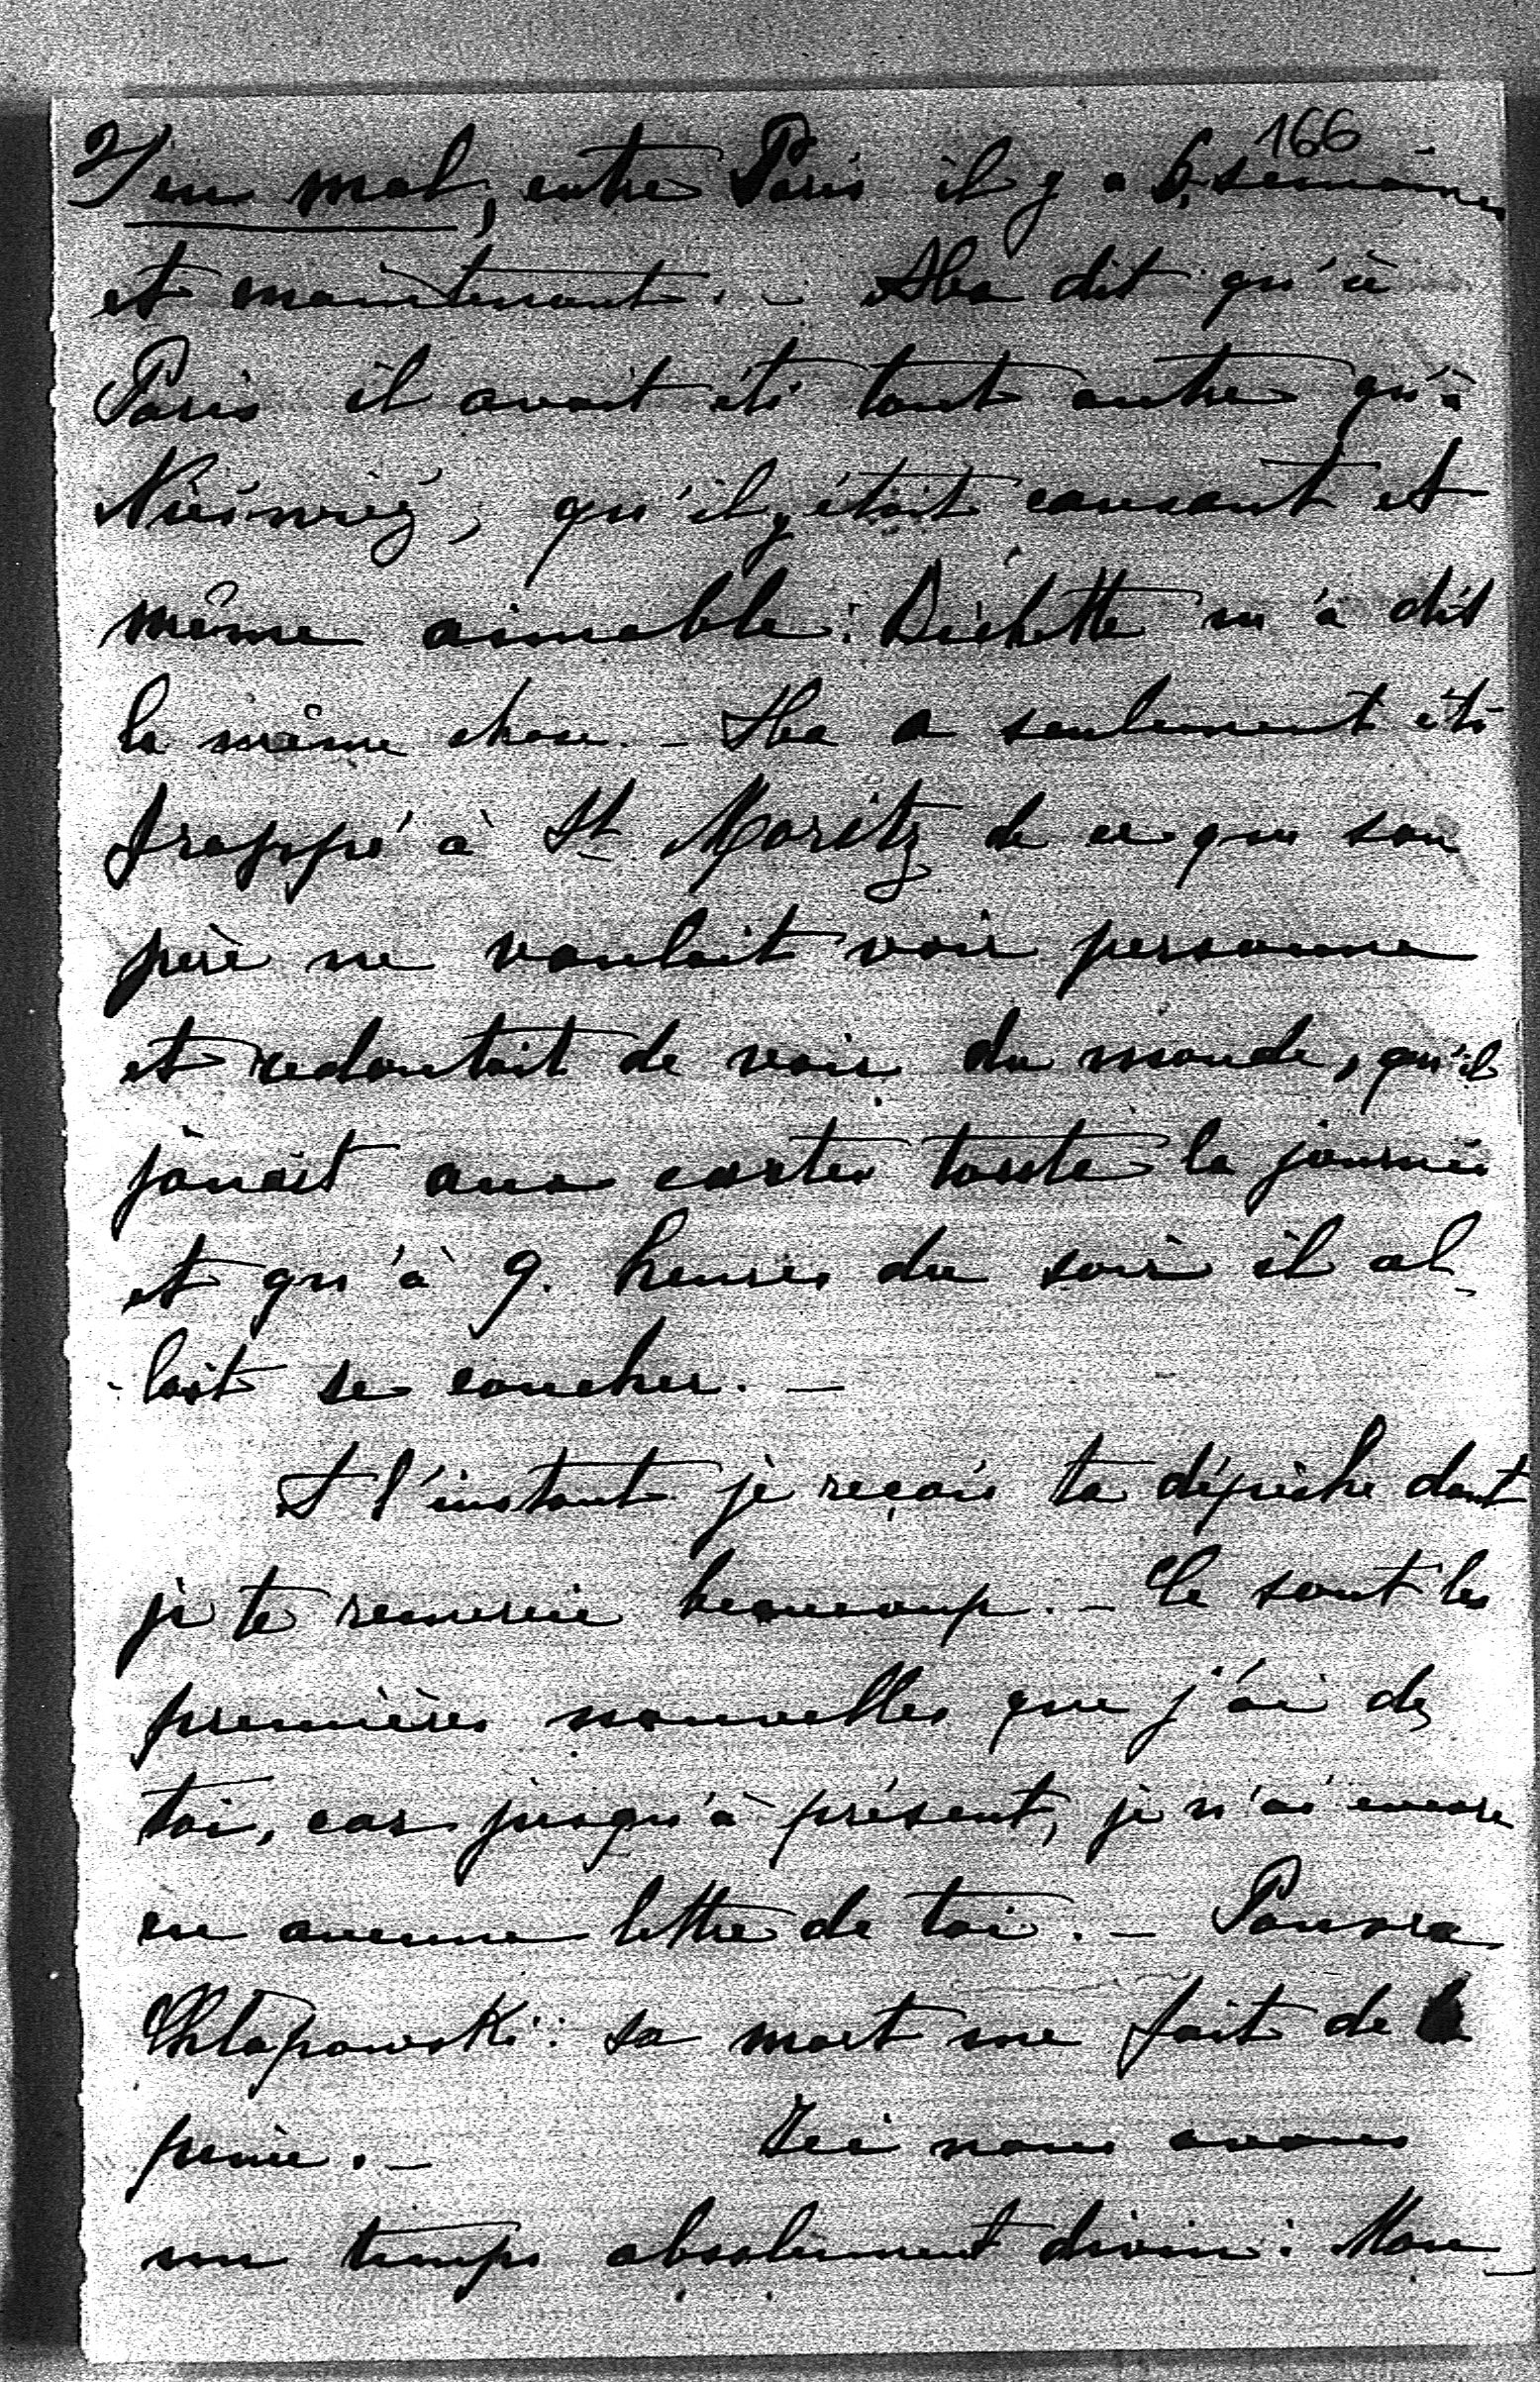 166
2/ en mal, entre Paris il y a 6 semaines
et maintenant. – Aba dit qu'à
Paris il avait été tout autre qu'à
Nieśwież, qu'il y était causant et
même aimable: Bichette m'a dit
la même chose. – Aba a seulement été
frappé à St Moritz de ce que son
père ne voulait voir personne
et redoutait de voir du monde, qu'il
jouait aux cartes toute la journée
et qu'à 9. heures du soir il al-
-lait se coucher. –
A l'instant je reçois ta dépêche dont
je te remercie beaucoup. – Ce sont les
premières nouvelles que j'ai de
toi, car jusqu'à présent, je n'ai encore
eu aucune lettre de toi. – Pauvre
Chłapowski: sa mort me fait de la
peine. – Ici nous avons
un temps absolument divin: Mon-